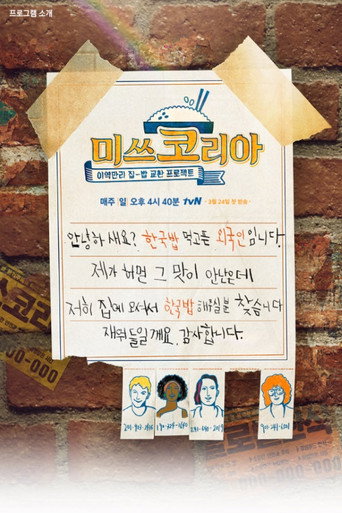 프로그램 소개
미쓰 코리아
이역만리 집-밥 교환 프로젝트
매주 일 오후 4시 40분 tvN · 3월 24일 첫 방송 ·
안녕하세요? 한국밥 먹고픈 외국인입니다.
제가 하면 그 맛이 안나는데
저희 집에 오셔서 한국밥 해주실분 찾습니다
재워드릴게요. 감사합니다.
쓰코리
00-000